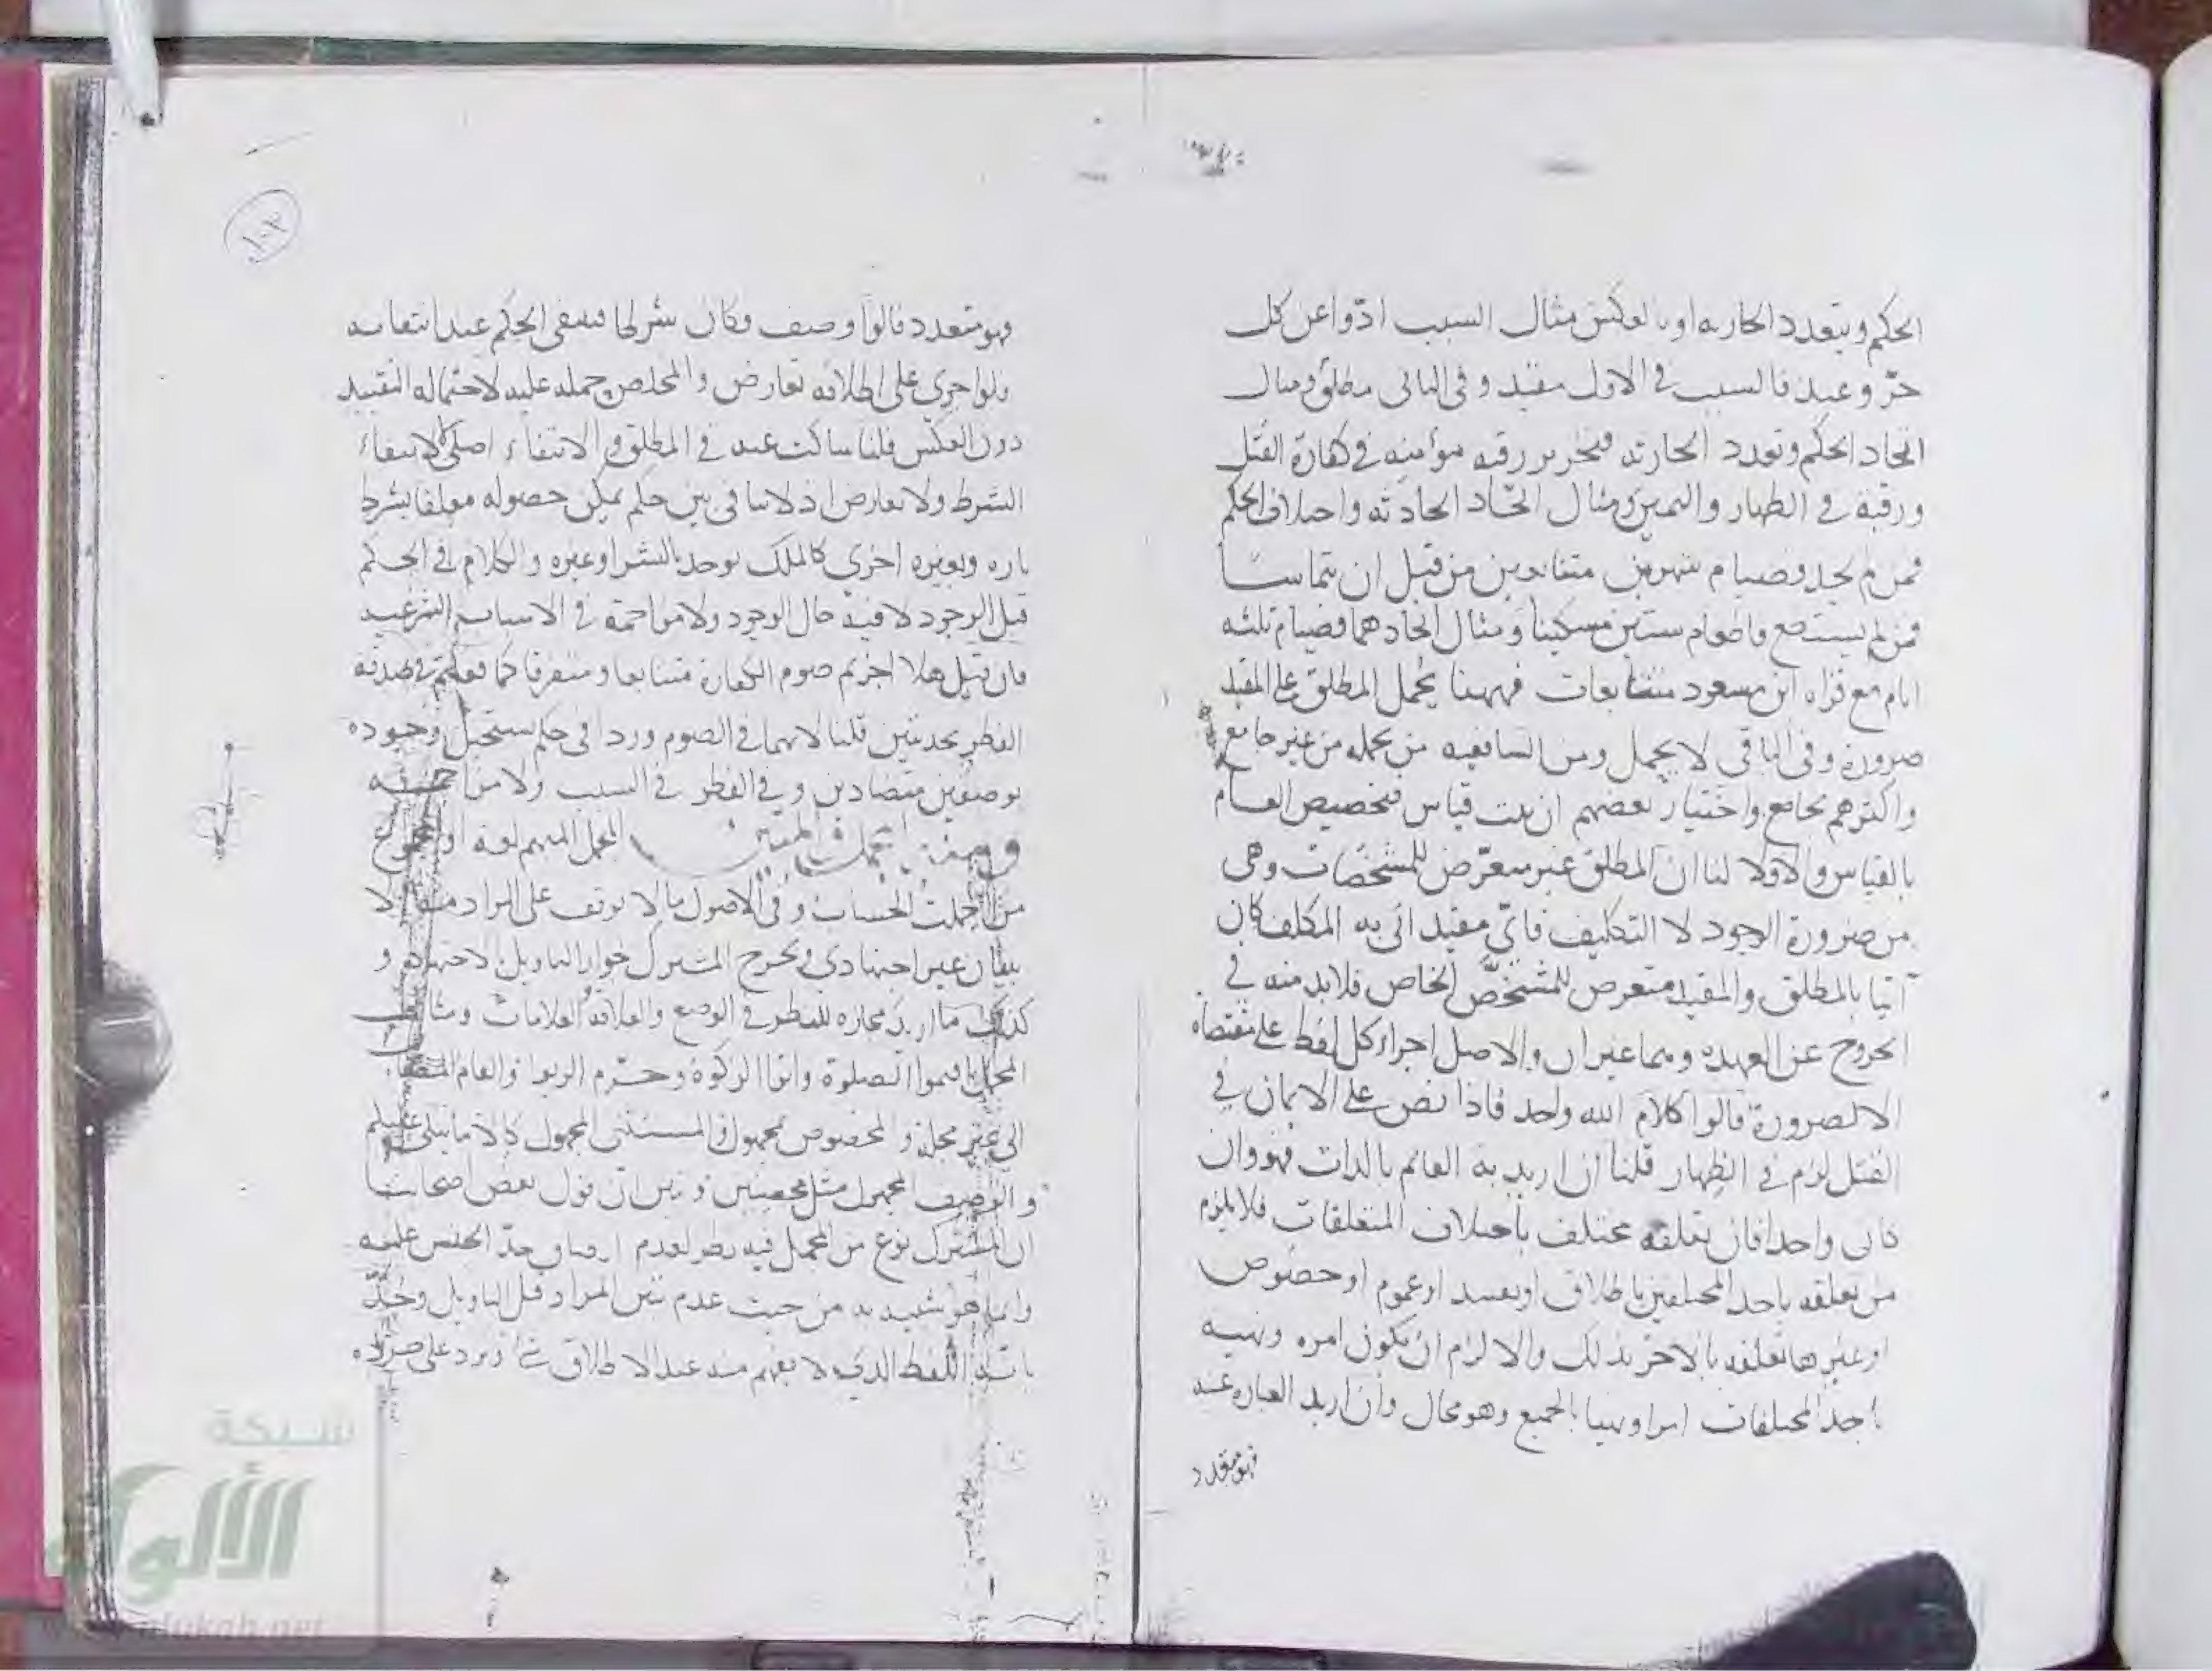 الحكم وبتعدد الحادثة او بالعكس مثال السبب ادّوا عن كل
حرّ وعبد فالسبب في الاول مقيد وفي الثاني مطلق ومثال
اتحاد الحكم وتعدد الحادثة فتحرير رقبة مؤمنة في كفارة القتل
ورقبة في الظهار واليمين ومثال اتحاد الحادثة واختلاف الحكم
فمن لم يجد فصيام شهرين متتابعين من قبل ان يتماسا
فمن لم يستطع فاطعام ستين مسكينا ومثال اتحادهما فصيام ثلثة
ايام مع قراءة ابن مسعود متتابعات فههنا يحمل المطلق على المقيد
ضرورة وفي الباقي لا يحمل ومن الشافعية من يحمله من غير جامع
واكثرهم بجامع واختيار بعضهم ان ثبت قياس فتخصيص العام
بالقياس والا فلا لنا ان المطلق غير متعرّض للمشخّصات وهي
من ضرورة الوجود لا التكليف فايّ مقيد اتى به المكلف كان
آتيا بالمطلق والمقيد متعرض للمشخّص الخاص فلا بد منه في
الخروج عن العهدة وهما غيران والاصل اجراء كل لفظ على مقتضاه
الا لضرورة قالوا كلام الله واحد فاذا نص على الايمان في
القتل لزم في الظهار قلنا ان اريد به القائم بالذات فهو وان
كان واحدا فان تعلقه مختلف باختلاف المتعلقات فلا يلزم
من تعلقه باحد المختلفين باطلاق او تقييد او عموم او خصوص
او غيرها تعلقه بالاخر بذلك والا لزم ان يكون امره ونهيه
باحد المختلفات امرا ونهيا بالجميع وهو محال وان اريد العبارة عنه
فهو متعدد
١٠٢
فهو متعدد قالوا وصف فكان شرطا فينتفي الحكم عند انتفائه
ولو اجري على اطلاقه تعارض والمخلص حمله عليه لاحتماله التقييد
دون العكس قلنا ساكت عنه في المطلق والانتفاء اصلي لا لانتفاء
الشرط ولا تعارض اذ لا تنافي بين حكم يمكن حصوله معلقا بشرط
تارة وبغيره اخرى كالملك يوجد بالشراء وغيره والكلام في الحكم
قبل الوجود لا فيه حال الوجود ولا مزاحمة في الاسباب الشرعية
فان قيل هلا اجزتم صوم الكفارة متتابعا ومتفرقا كما فعلتم في صدقة
الفطر بحديثين قلنا لانهما في الصوم وردا في حكم يستحيل وجوده
بوصفين متضادين وفي الفطر في السبب ولا مزاحمة
المجمل المبهم لغة او المجموع
من اجملت الحساب وفي الاصول ما لا يوقف على المراد منه الا
ببيان غير اجتهادي فيخرج المشترك لجواز التاويل لاجتهاده و
كذلك ما اريد مجازه للنظر في الوضع والعلاقة والعلامات ومثال
المجمل اقيموا الصلوة واتوا الزكوة وحرّم الربوا والعام
الى غير مجلة والمخصوص بمجهول والمستثنى المجهول كالا ما يتلى عليكم
والوصف المجهول مثل محصنين وتبين ان قول بعض اصحابنا
ان المشترك نوع من المجمل فيه نظر لعدم حدّ الجنس عليه
وانما هو شبيه به من حيث عدم تبين المراد قبل التاويل وحدّ
بانه اللفظ الذي لا يفهم منه عند الاطلاق شئ ويرد على
شبكة
الألوكة